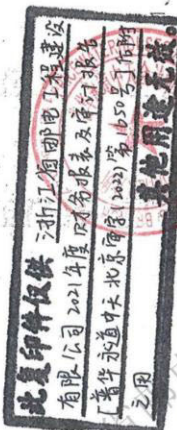 此复印件仅供 浙江省邮电工程建设
有限公司2021年度财务报表及审计报告
[普华永道中天北京审字(2022)第1650号]附件
之用 其他用途无效。